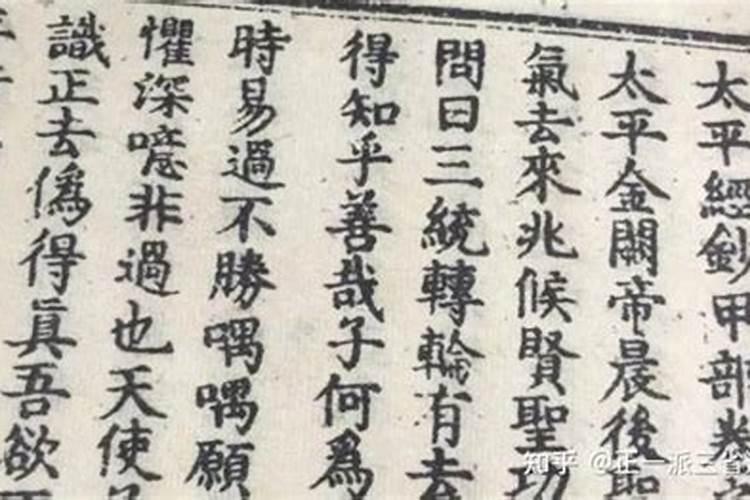 太平經鈔甲部卷
太平金闕帝晨後聖
氣去來兆候賢聖功
問曰三統轉輪有去
得知乎善哉子何為
時易過不勝喁喁願
懼深噫非過也天使
識正去偽得眞吾欲
知乎 @正一派三省